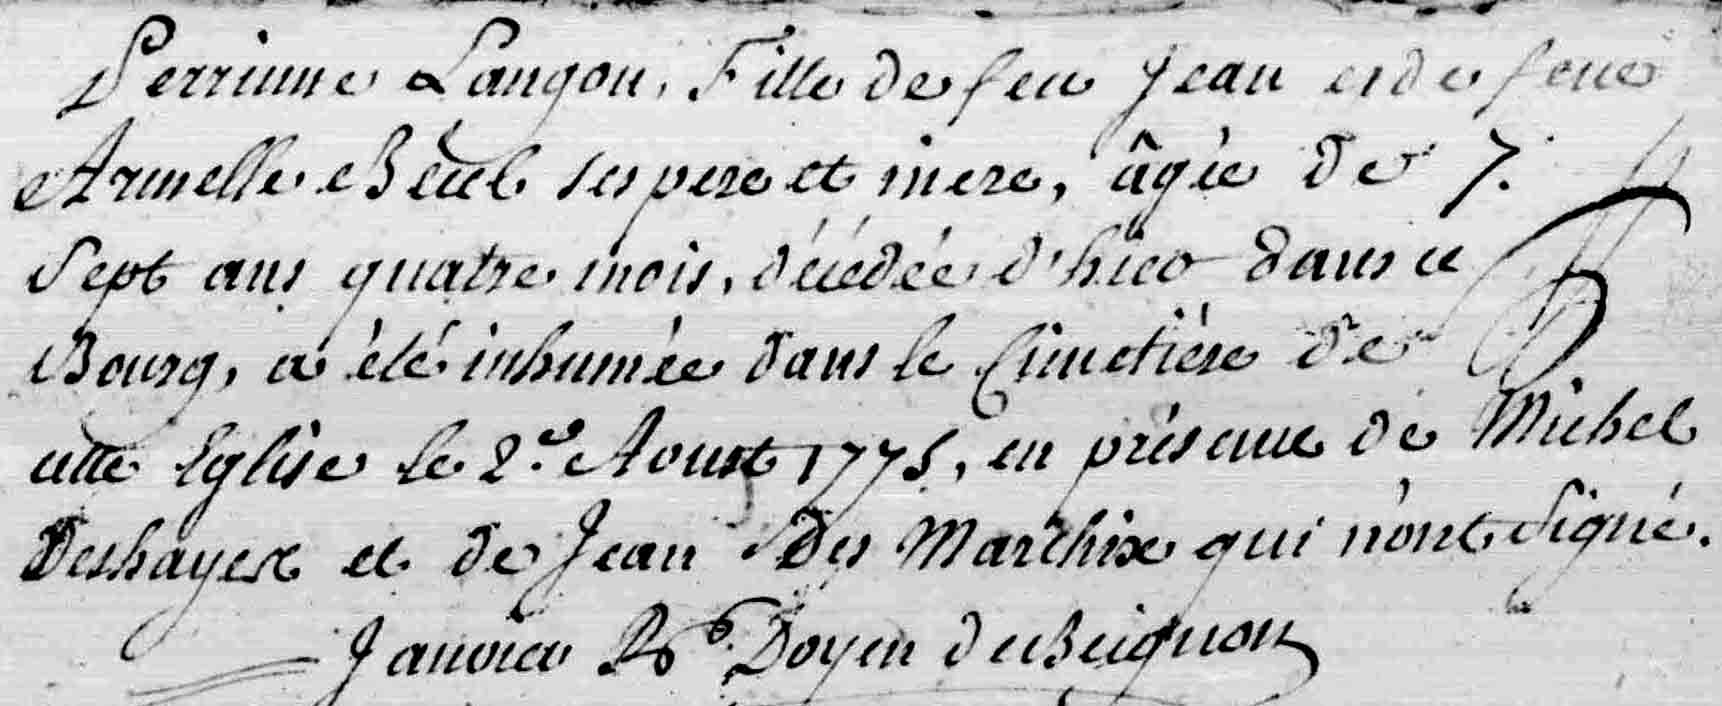 Perrinne Langou, Fille de feu Jean et de feue
Armelle Béeul ses pere et mere, âgée de 7.
Sept ans quatre mois, décédée d'hier dans ce
Bourg, a été inhumée dans le Cimetière de
cette Eglise le 2.e Aoust 1775, en présence de Michel
Deshayes et de Jean Des Marchix qui n'ont Signé.
Janvier Rr. Doyen de Beignon